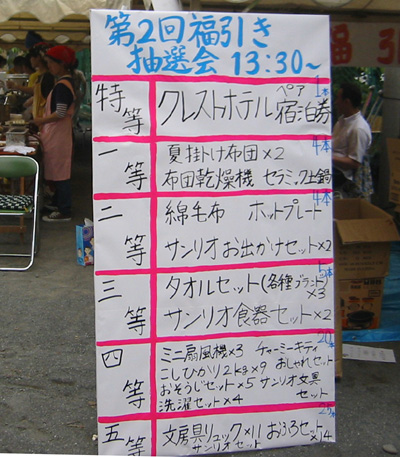 第2回福引き
抽選会 13:30~
特等
1本
ペア
クレストホテル宿泊券
一等
4本
夏掛け布団×2
布団乾燥機 セラミック土鍋
二等
4本
綿毛布 ホットプレート
サンリオお出かけセット×2
三等
5本
タオルセット(各種ブランド)×3
サンリオ食器セット×2
四等
20本
ミニ扇風機×3 チャーミーキティ
こしひかり2kg×9 おしゃれセット
おそうじセット×5 サンリオ文具
洗濯セット×4 セット
五等
25本
文房具リュック×11 おふろセット×14
サンリオセット
福引